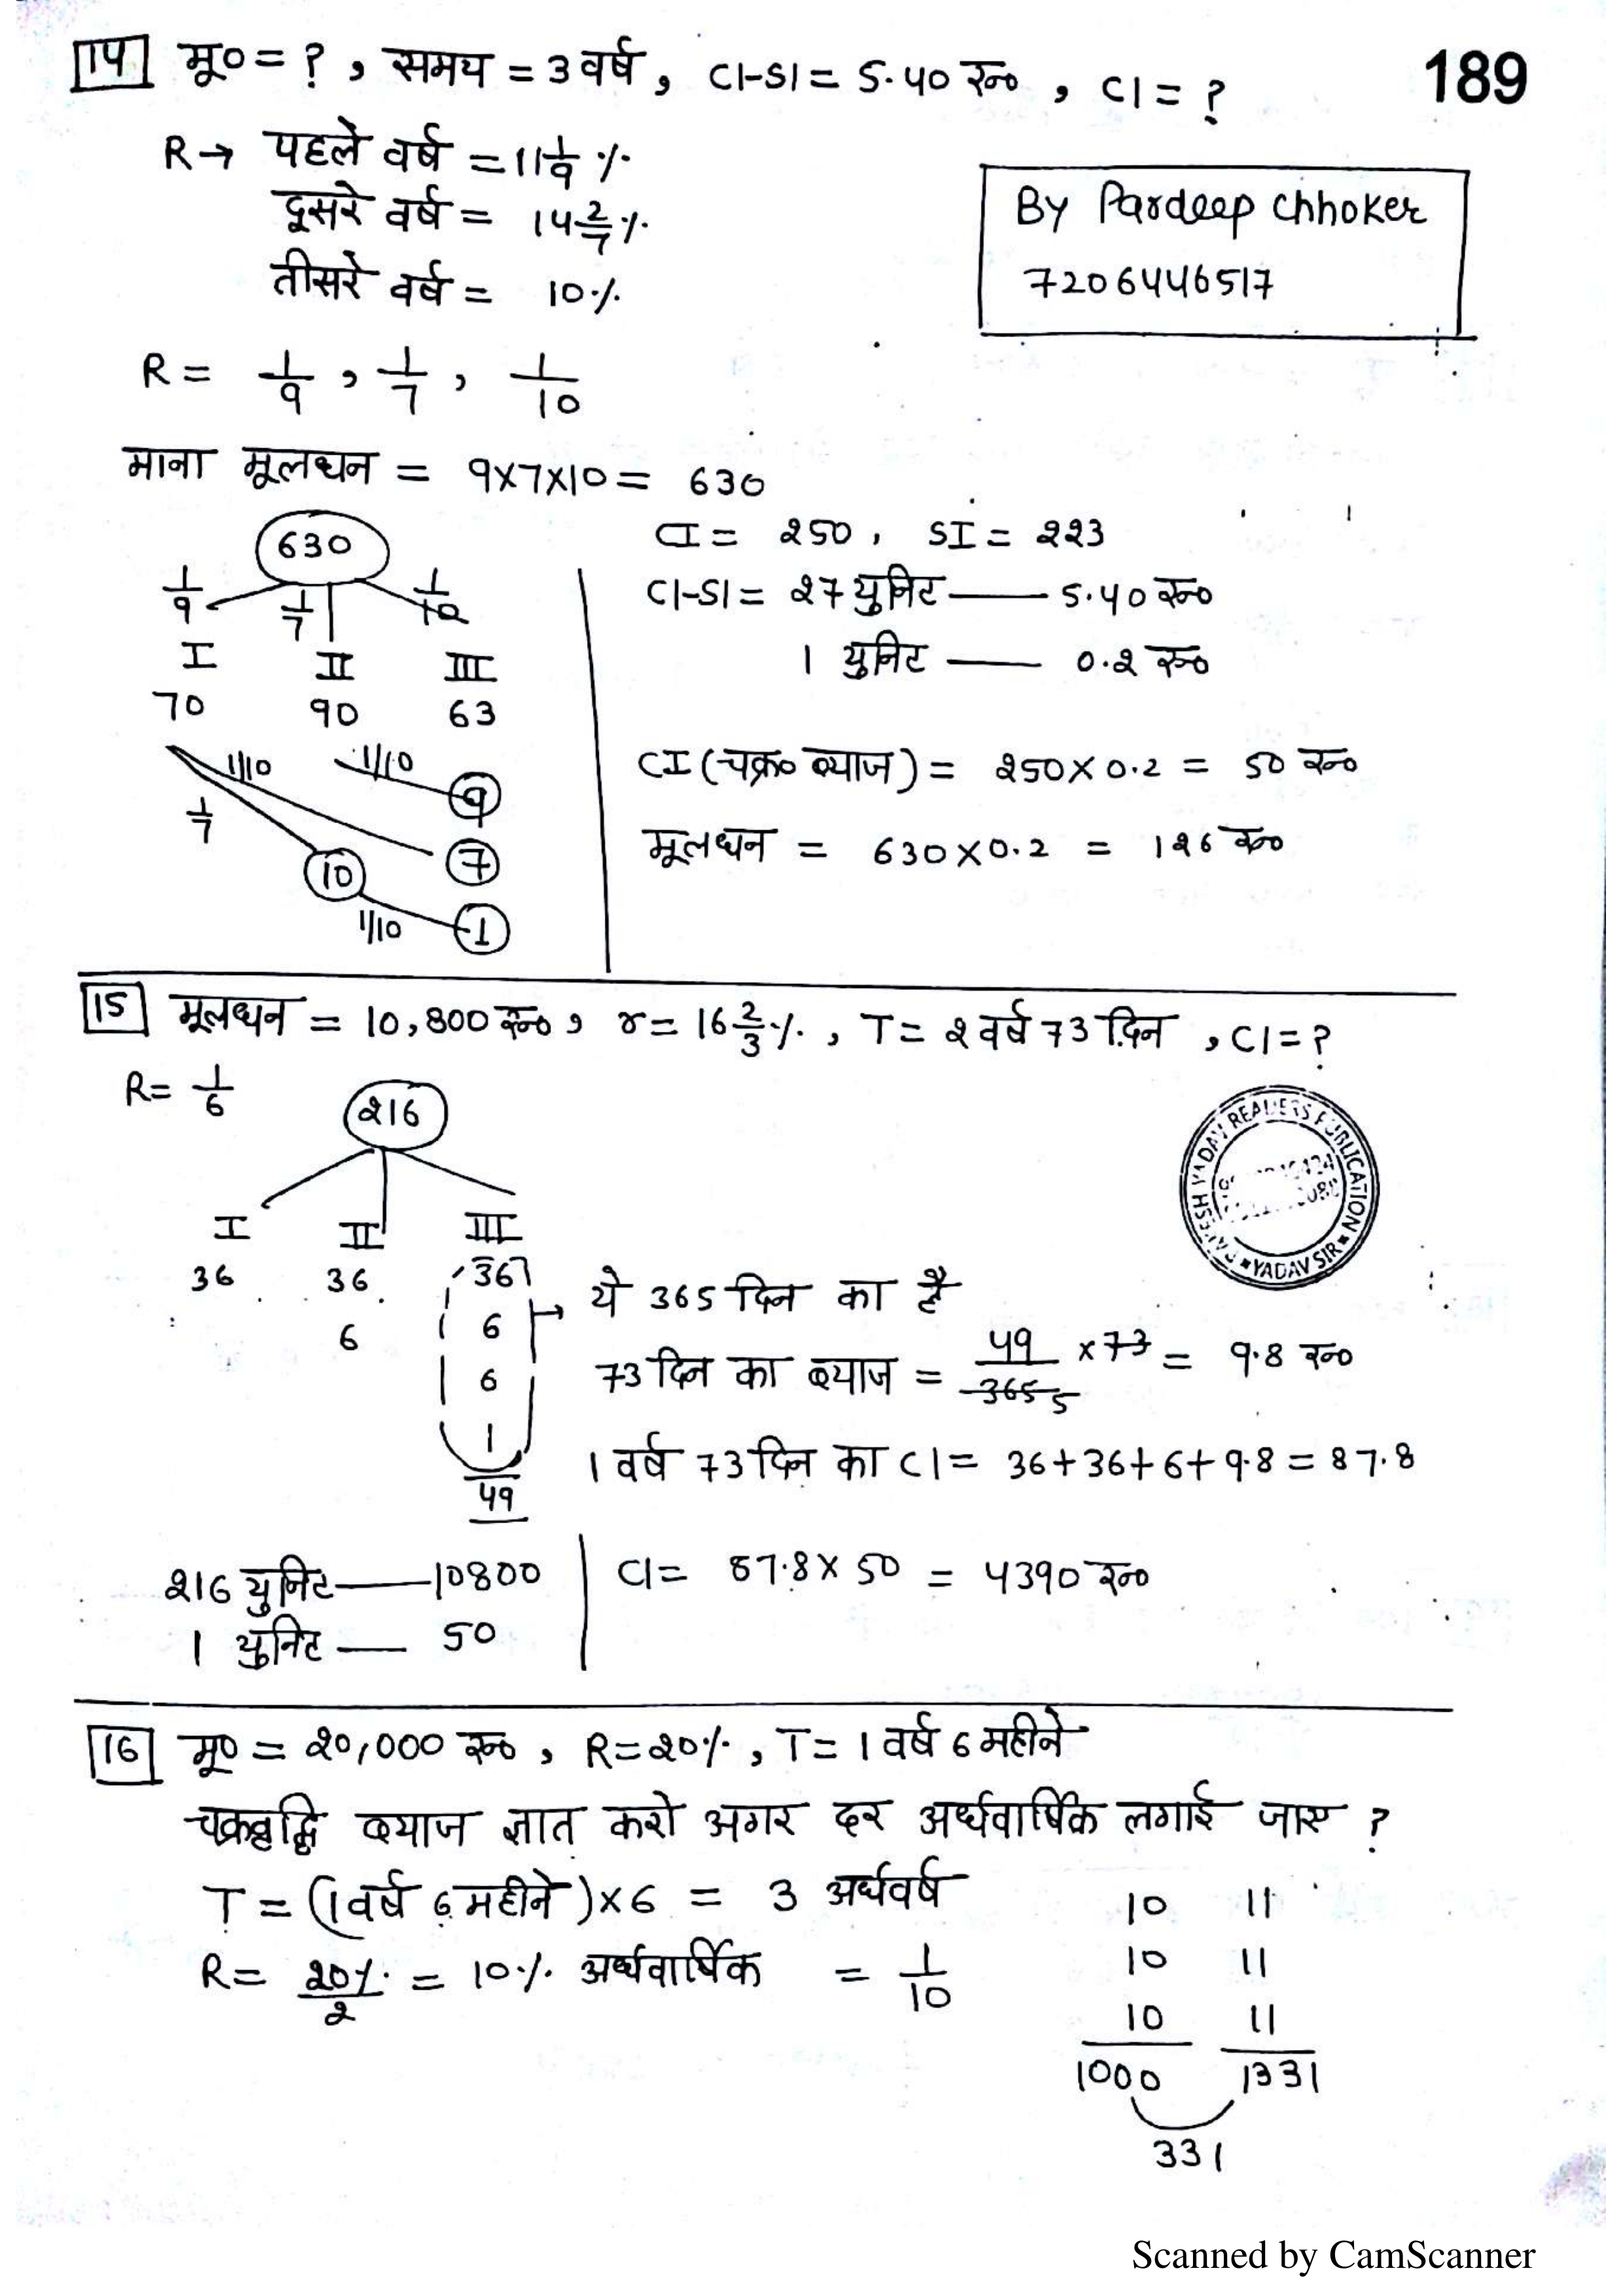 14 मू० = ? , समय = 3 वर्ष , CI-SI = 5.40 रू० , CI = ?
189
R → पहले वर्ष = 11 1/9 %
दूसरे वर्ष = 14 2/7 %
तीसरे वर्ष = 10%
By Pardeep Chhoker
7206446517
R = 1/9 , 1/7 , 1/10
माना मूलधन = 9x7x10 = 630
630
1/9 1/7 1/10
I II III
70 90 63
1/10 1/10 9
1/7 7
10
1/10 1
CI = 250 , SI = 223
CI-SI = 27 युनिट — 5.40 रू०
1 युनिट — 0.2 रू०
CI (चक्र० ब्याज) = 250 x 0.2 = 50 रू०
मूलधन = 630 x 0.2 = 126 रू०
15 मूलधन = 10,800 रू० , r = 16 2/3 % , T = 2 वर्ष 73 दिन , CI = ?
R = 1/6
216
I II III
36 36 36
6 6
6
1
49
→ ये 365 दिन का है
73 दिन का ब्याज = 49/365 5 x 73 = 9.8 रू०
1 वर्ष 73 दिन का CI = 36+36+6+9.8 = 87.8
216 युनिट — 10800
1 युनिट — 50
CI = 87.8 x 50 = 4390 रू०
READERS PUBLICATION
YADAV SIR
16 मू० = 20,000 रू० , R = 20% , T = 1 वर्ष 6 महीने
चक्रवृद्धि ब्याज ज्ञात करो अगर दर अर्धवार्षिक लगाई जाए ?
T = (1 वर्ष 6 महीने) x 6 = 3 अर्धवर्ष
R = 20%/2 = 10% अर्धवार्षिक = 1/10
10 11
10 11
10 11
1000 1331
331
Scanned by CamScanner